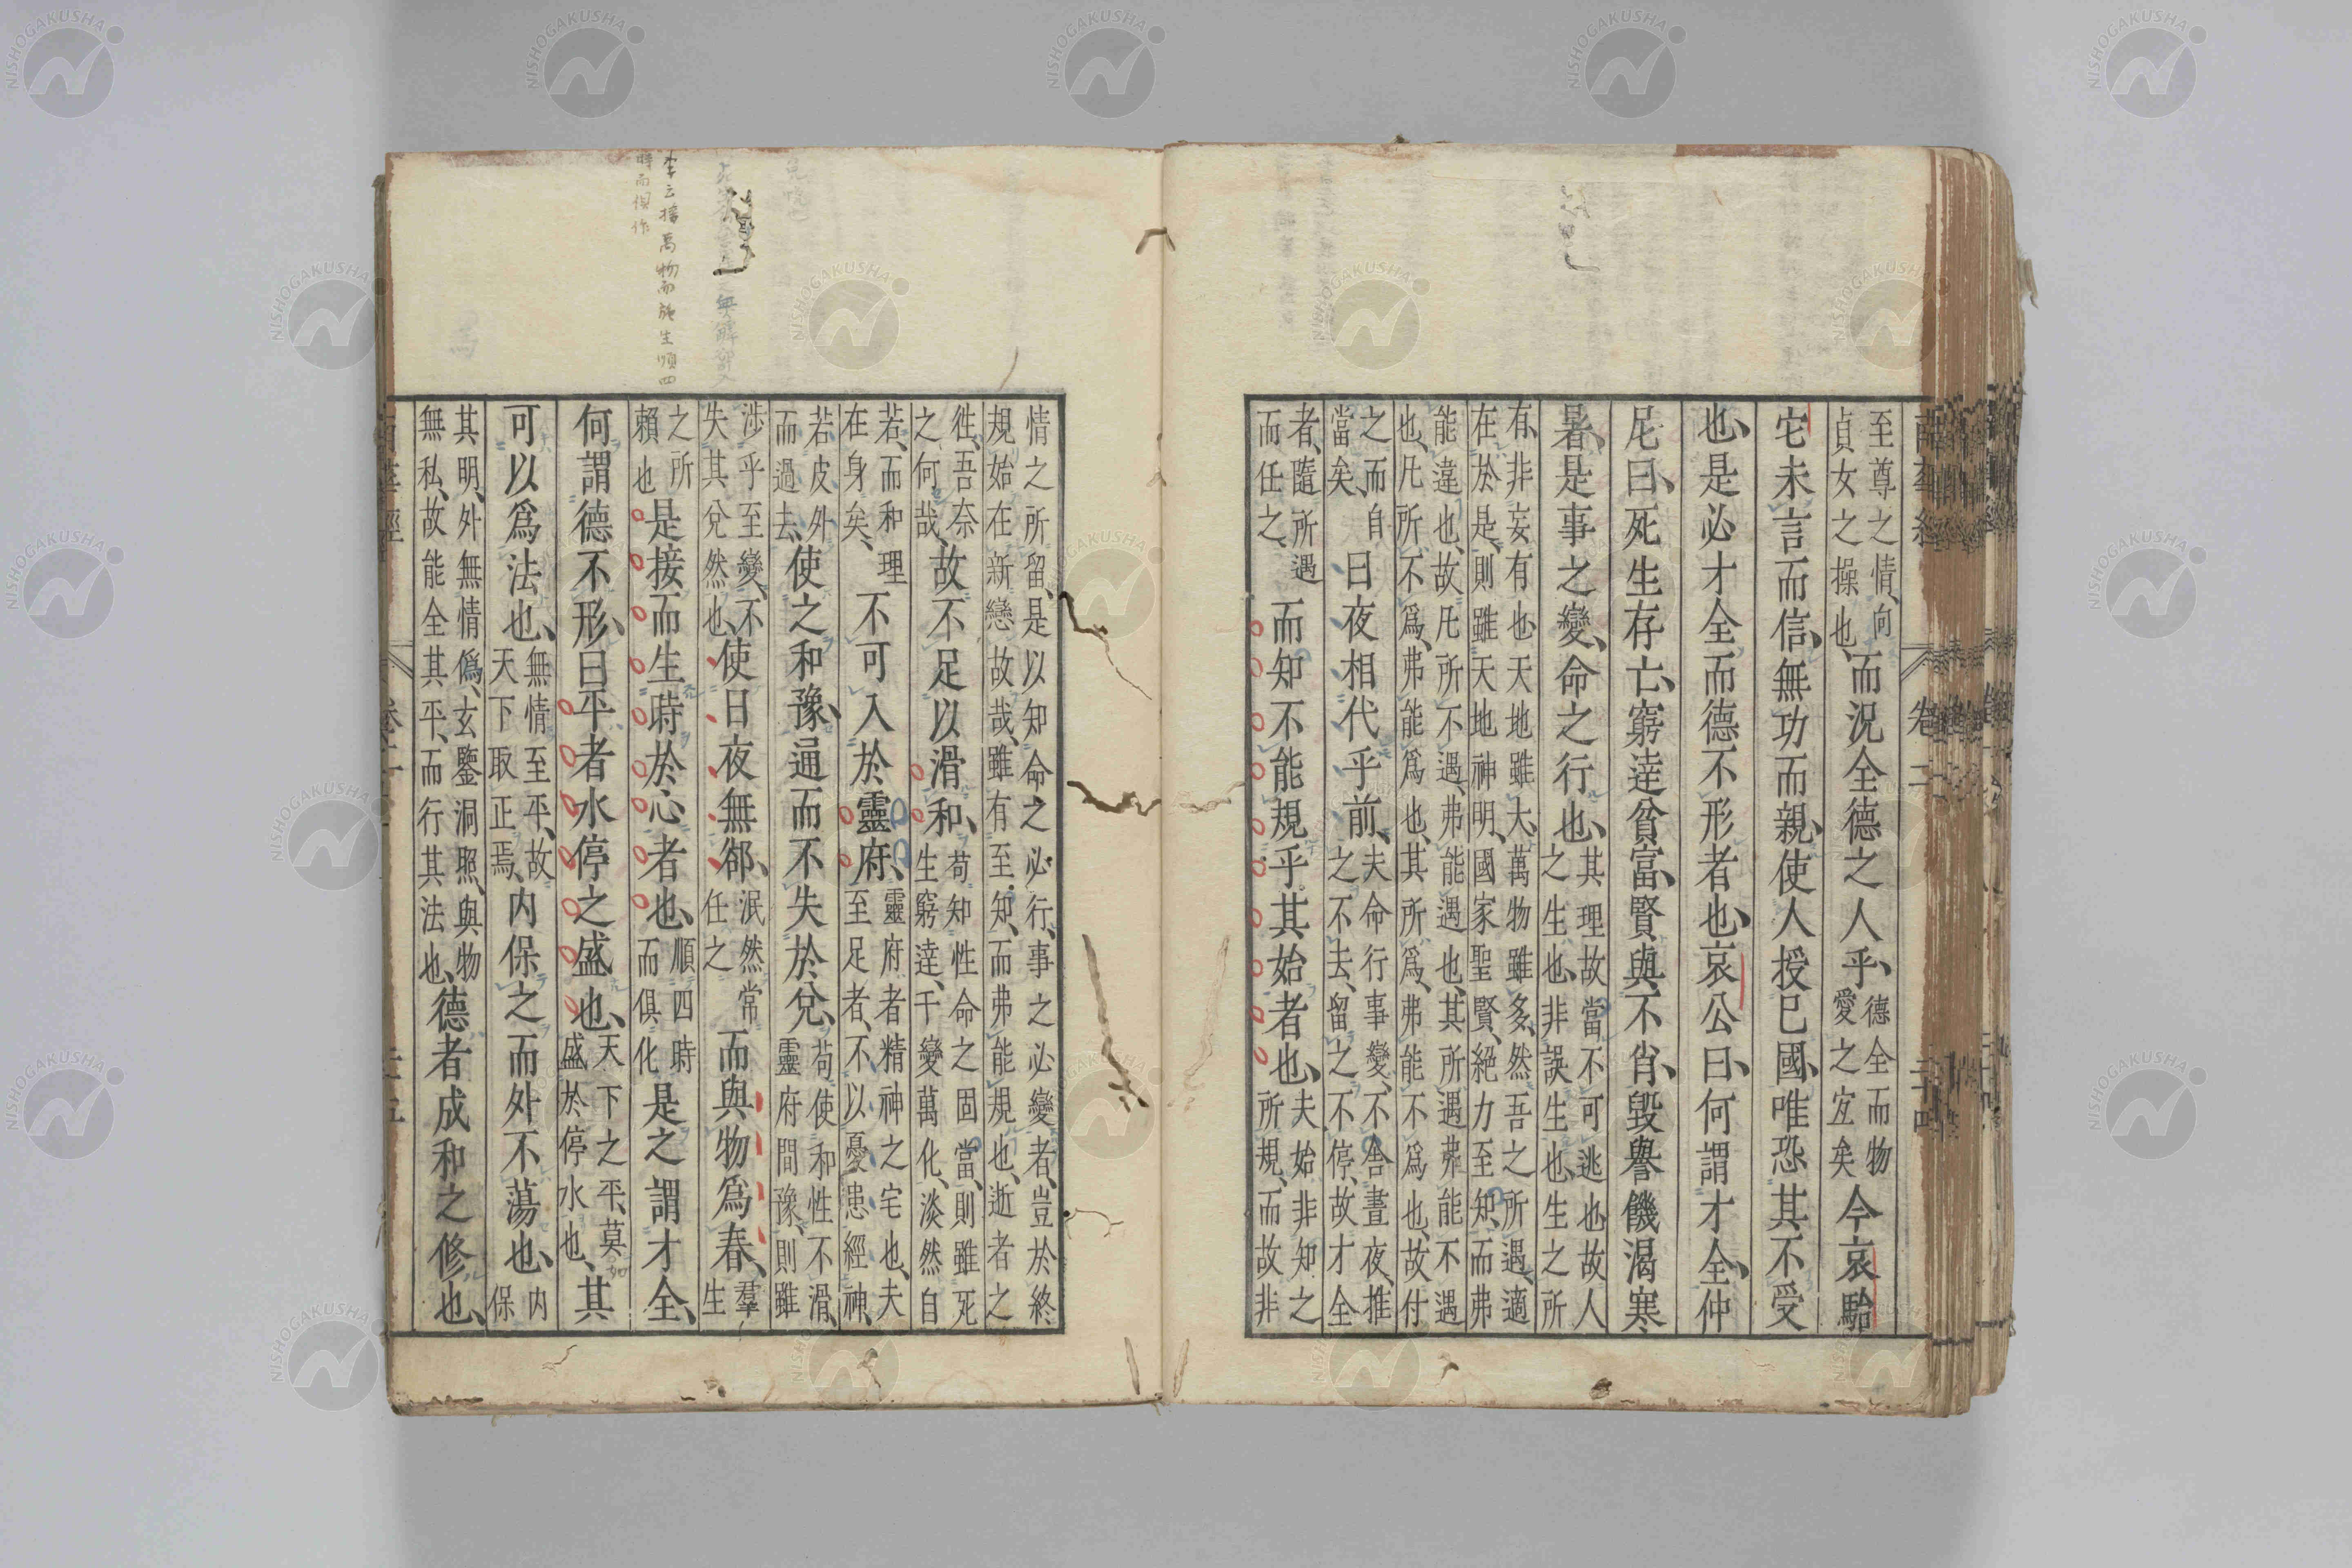 南華經 卷二 二十四
至尊之情、向貞女之操也、而況全德之人乎、德全而物愛之宜矣今哀駘
它未言而信、無功而親、使人授已國、唯恐其不受
也、是必才全而德不形者也、哀公曰、何謂才全、仲
尼曰、死生存亡、窮達貧富、賢與不肖、毀譽饑渴寒
暑、是事之變、命之行也、其理故當不可逃也故人之生也、非誤生也、生之所
有、非妄有也天地雖大、萬物雖多、然吾之所遇、適在於是、則雖天地神明、國家聖賢、絕力至知、而弗
能違也、故凡所不遇、弗能遇也、其所遇弗能不遇也、凡所不爲、弗能爲也、其所爲、弗能不爲也、故付
之而自當矣、日夜相代乎前、夫命行事變、不舍晝夜、推之不去、留之不停、故才全
者、隨所遇而任之、而知不能規乎其始者也、夫始非知之所規、而故非
情之所留、是以知命之必行、事之必變者、豈於終規始在新戀故哉、雖有至知、而弗能規也、逝者之
徃、吾奈之何哉、故不足以滑和、苟知性命之固當、則雖死生窮達、千變萬化、淡然自
若、而和理在身矣、不可入於靈府、靈府者精神之宅也、夫至足者、不以憂患經神、
若皮外而過去、使之和豫、通而不失於兌、苟使和性不滑、靈府間豫、則雖
涉乎至變、不失其兌然也、使日夜無郤、泯然常任之而與物爲春、羣生
之所賴也是接而生時於心者也、順四時而俱化是之謂才全、
何謂德不形、曰平者水停之盛也、天下之平、莫盛於停水也、其
可以爲法也、無情至平、故天下取正焉、内保之而外不蕩也、内保
其明、外無情僞、玄鑒洞照、與物無私、故能全其平、而行其法也、德者成和之修也、
李云接萬物而施生順四
時而俱作
NISHOGAKUSHA